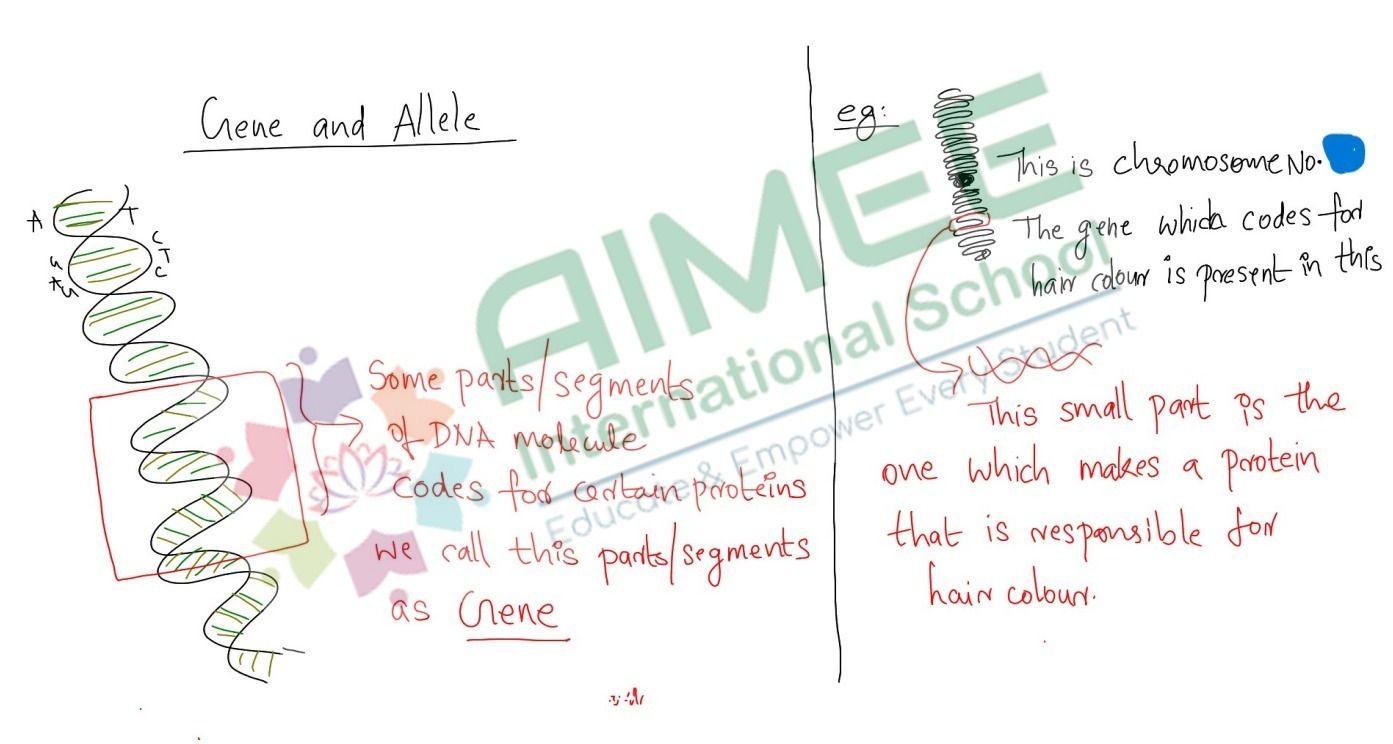 Gene and Allele
A T
C
T
C
G
A
G
Some parts/segments
of DNA molecule
codes for certain proteins
we call this parts/segments
as Gene
eg:
This is chromosome No.
The gene which codes for
hair colour is present in this
This small part is the
one which makes a protein
that is responsible for
hair colour.
AIMEE
International School
Educate & Empower Every Student